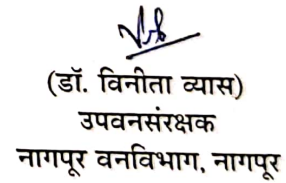 (डॉ. विनीता व्यास)
उपवनसंरक्षक
नागपूर वनविभाग, नागपूर